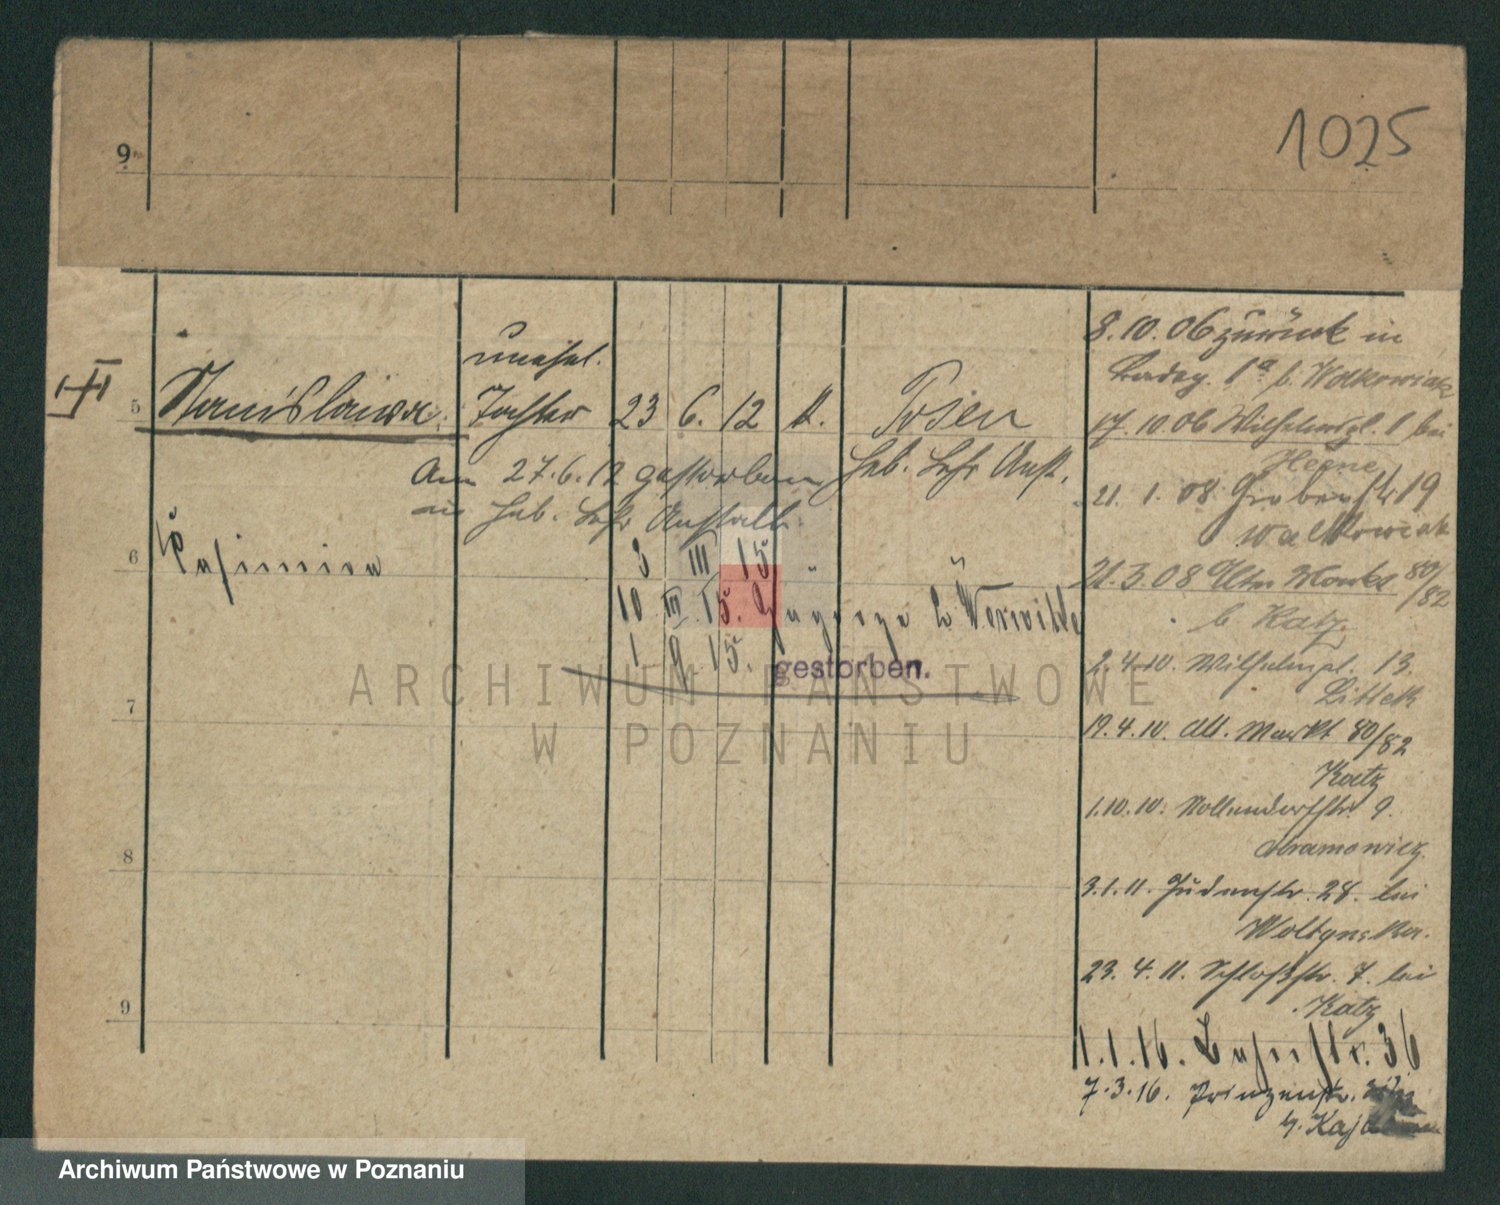 9.
1025
8.10.06 zurück in
1a b. Walkowiak
unehel.
5 Stanislawa. Tochter 23 6. 12 k. Posen
Heb. Lehr Anst.
17.10.06 Wilhelmspl. 1 bei
Heyne
Am 27.6.12 gestorben
in Heb. Lehr Anstalt.
21. 1. 08 Grabenstr. 19
Walkowiak
6 Kasimira 3 III 15
21.3.08 Alter Markt 80/82
b Katz.
10. III. 15.
1 15. gestorben.
2.4.10. Wilhelmspl. 13.
Littek
7
19.4.10. Alt. Markt 80/82
Katz
1.10.10. Nollendorfstr. 9.
Abramowicz
8
3.1.11. Judenstr. 28. bei
Wollynska.
23. 4. 11. Schloßstr. 7. bei
Katz
9
1.1.16. 36
7.3.16. Prinzenstr.
ARCHIWUM PAŃSTWOWE
W POZNANIU
Archiwum Państwowe w Poznaniu